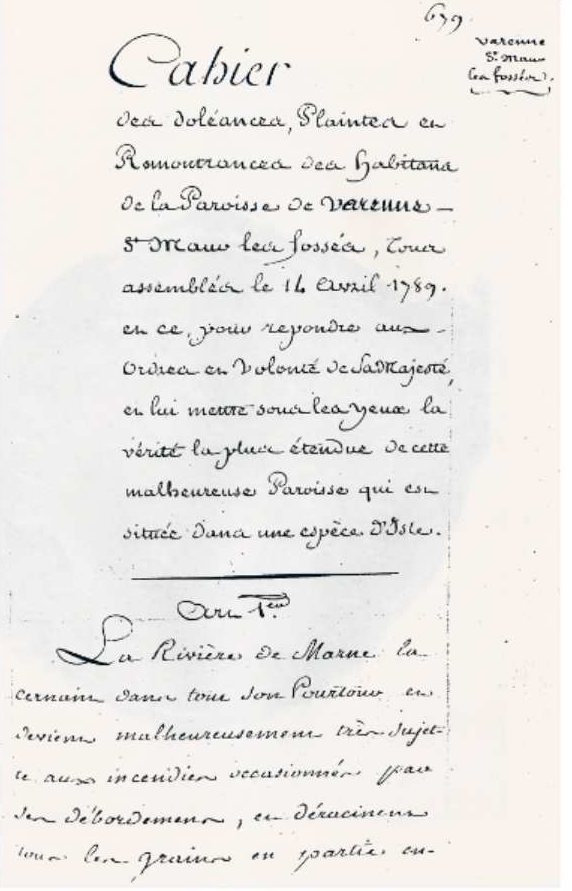 639
Varenne
St. Maur
les fossés.
Cahier
des doléances, Plaintes et
Remontrances des habitans
de la Paroisse de Varenne -
St Maur les fossés, Tous
assemblés le 14 Avril 1789.
et ce, pour repondre aux -
Ordres et Volonté de Sa Majesté,
et lui mettre sous les yeux la
vérité la plus étendue de cette
malheureuse Paroisse qui est
située dans une espèce d'Isle.
Art 1er
La Rivière de Marne la
cernant dans tout son Pourtour en
devient malheureusement très sujet-
te aux incendies occasionnés par
ses débordemens, en déracinent
tous les grains en partie en-